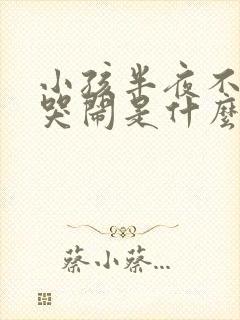 小孩半夜不
哭鬧是什麼
蔡小蔡...